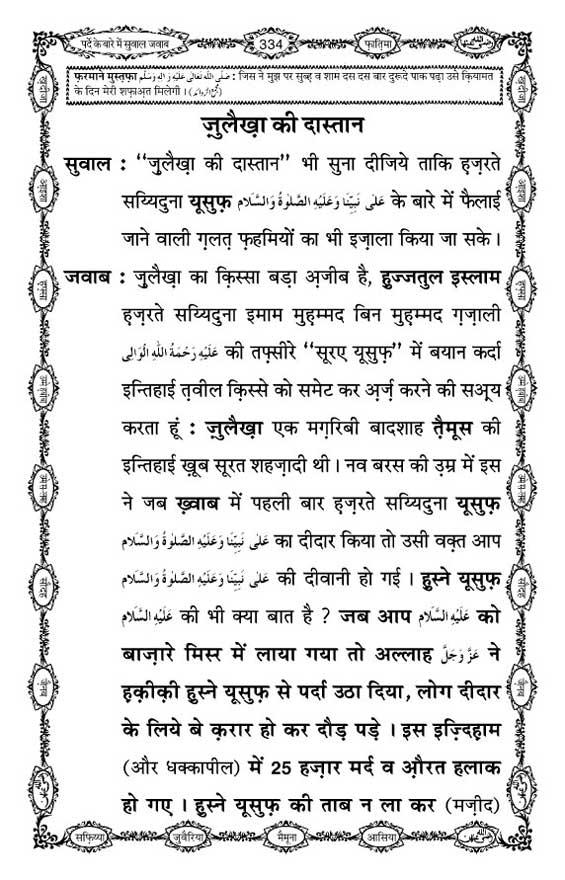 पर्दे के बारे में सुवाल जवाब
334
फ़ातिमा
फ़रमाने मुस्तफ़ा صَلَّى اللّٰهُ تَعَالٰى عَلَيْهِ وَاٰلِهٖ وَسَلَّم : जिस ने मुझ पर सुब्ह व शाम दस दस बार दुरूदे पाक पढ़ा उसे क़ियामत
के दिन मेरी शफ़ाअ़त मिलेगी । (مجمع الزوائد)
ज़ुलैख़ा की दास्तान
सुवाल : ‘‘ज़ुलैख़ा की दास्तान’’ भी सुना दीजिये ताकि ह़ज़रते
सय्यिदुना यूसुफ़ عَلٰى نَبِيِّنَا وَعَلَيْهِ الصَّلٰوةُ وَالسَّلَام के बारे में फैलाई
जाने वाली ग़लत़ फ़हमियों का भी इज़ाला किया जा सके ।
जवाब : ज़ुलैख़ा का क़िस्सा बड़ा अ़जीब है, हुज्जतुल इस्लाम
ह़ज़रते सय्यिदुना इमाम मुह़म्मद बिन मुह़म्मद ग़ज़ाली
عَلَيْهِ رَحْمَةُ اللّٰهِ الْوَالِى की तफ़्सीरे ‘‘सूरए यूसुफ़’’ में बयान कर्दा
इन्तिहाई त़वील क़िस्से को समेट कर अ़र्ज़ करने की सअ़्य
करता हूं : ज़ुलैख़ा एक मग़रिबी बादशाह त़ैमूस की
इन्तिहाई ख़ूब सूरत शहज़ादी थी । नव बरस की उ़म्र में इस
ने जब ख़्वाब में पहली बार ह़ज़रते सय्यिदुना यूसुफ़
عَلٰى نَبِيِّنَا وَعَلَيْهِ الصَّلٰوةُ وَالسَّلَام का दीदार किया तो उसी वक़्त आप
عَلٰى نَبِيِّنَا وَعَلَيْهِ الصَّلٰوةُ وَالسَّلَام की दीवानी हो गई । ह़ुस्ने यूसुफ़
عَلَيْهِ السَّلَام की भी क्या बात है ? जब आप عَلَيْهِ السَّلَام को
बाज़ारे मिस्र में लाया गया तो अल्लाह عَزَّ وَجَلَّ ने
ह़क़ीक़ी ह़ुस्ने यूसुफ़ से पर्दा उठा दिया, लोग दीदार
के लिये बे क़रार हो कर दौड़ पड़े । इस इज़्दिह़ाम
(और धक्कापील) में 25 हज़ार मर्द व औ़रत हलाक
हो गए । ह़ुस्ने यूसुफ़ की ताब न ला कर (मज़ीद)
सफ़िय्या
जुवैरिया
मैमूना
आसिया